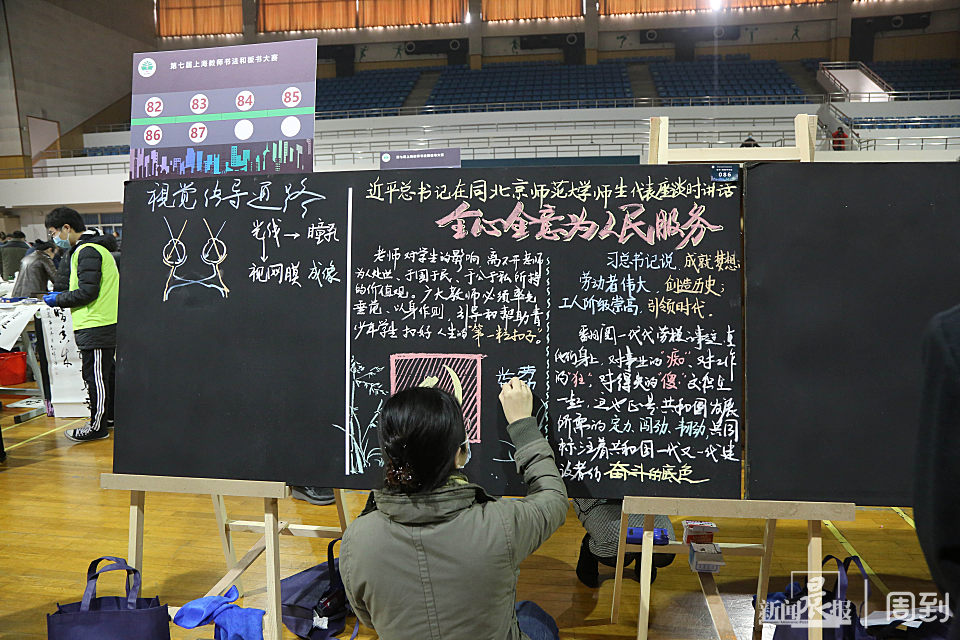 第七届上海教师书法和板书大赛
82 83 84 85
86 87
086
视觉传导通路
光线→瞳孔
视网膜 成像
近平总书记在同北京师范大学师生代表座谈时讲话
全心全意为人民服务
老师对学生的影响,离不开老师
为人处世、于国于民、于公于私所持
的价值观。广大教师必须率先
垂范、以身作则,引导和帮助青
少年学生扣好人生的“第一粒扣子”。
习总书记说,成就梦想
劳动者伟大,创造历史;
工人阶级崇高,引领时代。
翻阅一代代劳模
他们身上,对事业的“痴”、对工作
的“狂”、对得失的“傻”
一些,这也正是共和国发展
所需的定力、闯劲、韧劲,共同
标注着共和国一代又一代建
设者的 奋斗的底色
新闻晨报 周到